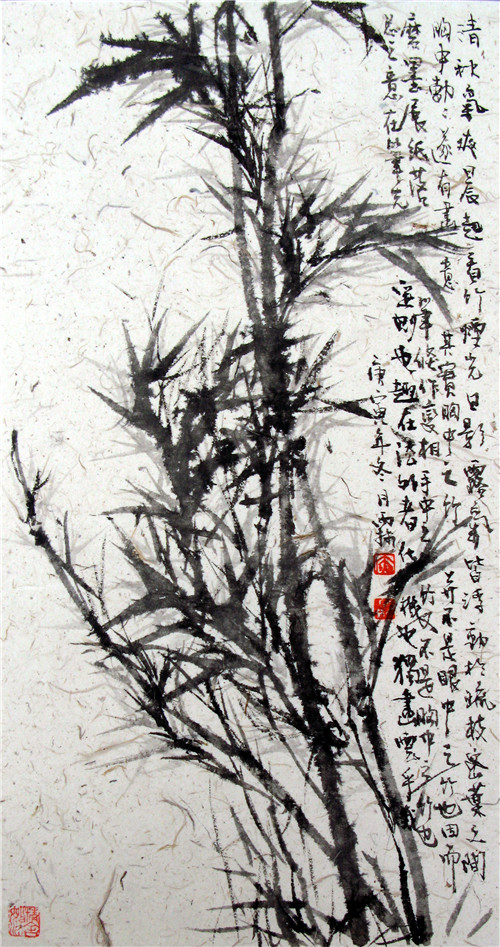 清秋氣爽晨起看竹煙光日影露氣皆浮動於疏枝密葉之間
胸中勃勃遂有畫意其實胸中之竹并不是眼中之竹也因而
磨墨展紙落筆倏作變相手中之竹又不是胸中之竹也
总之意在筆先定則也趣在法外者化機也獨畫雲乎哉
庚寅年冬月